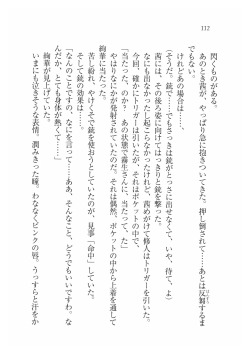 112
閃くものがある。
あのとき茜が、やっぱり急に抱きついてきた。押し倒されて……あとは反射するま
でもない。
けれどあの場合は……。
(そうだ、銃で……でもさっきは銃がとっさに出せなくて、いや、待て、よ)
茜にも、その後ろ姿に向けてはっきりと銃を撃った。
なにも出なかったし起こらなかったけれど、茜めがけて脩人はトリガーを引いた。
今回、確かにトリガーは引いたが、それはポケットの中で、
「当たった、のか。あの状態で霧生さんに、当たって、て」
やはりなにかが発射されていたのだ。それは偶然、ポケットの中から上着を通して
絢華に当たった。
そして銃の効果は……。
苦し紛れ、やけくそで銃を使おうとしていたのが、見事「命中」していた。
「なんのことですの。なにを言って……ああ、そんなこと、どうでもいいですわ。な
んだか、とても身体が熱くて……」
絢華が見上げていた。
いまにも泣きそうな表情。潤みきった瞳。わななくピンクの唇。うっすらと汗をか